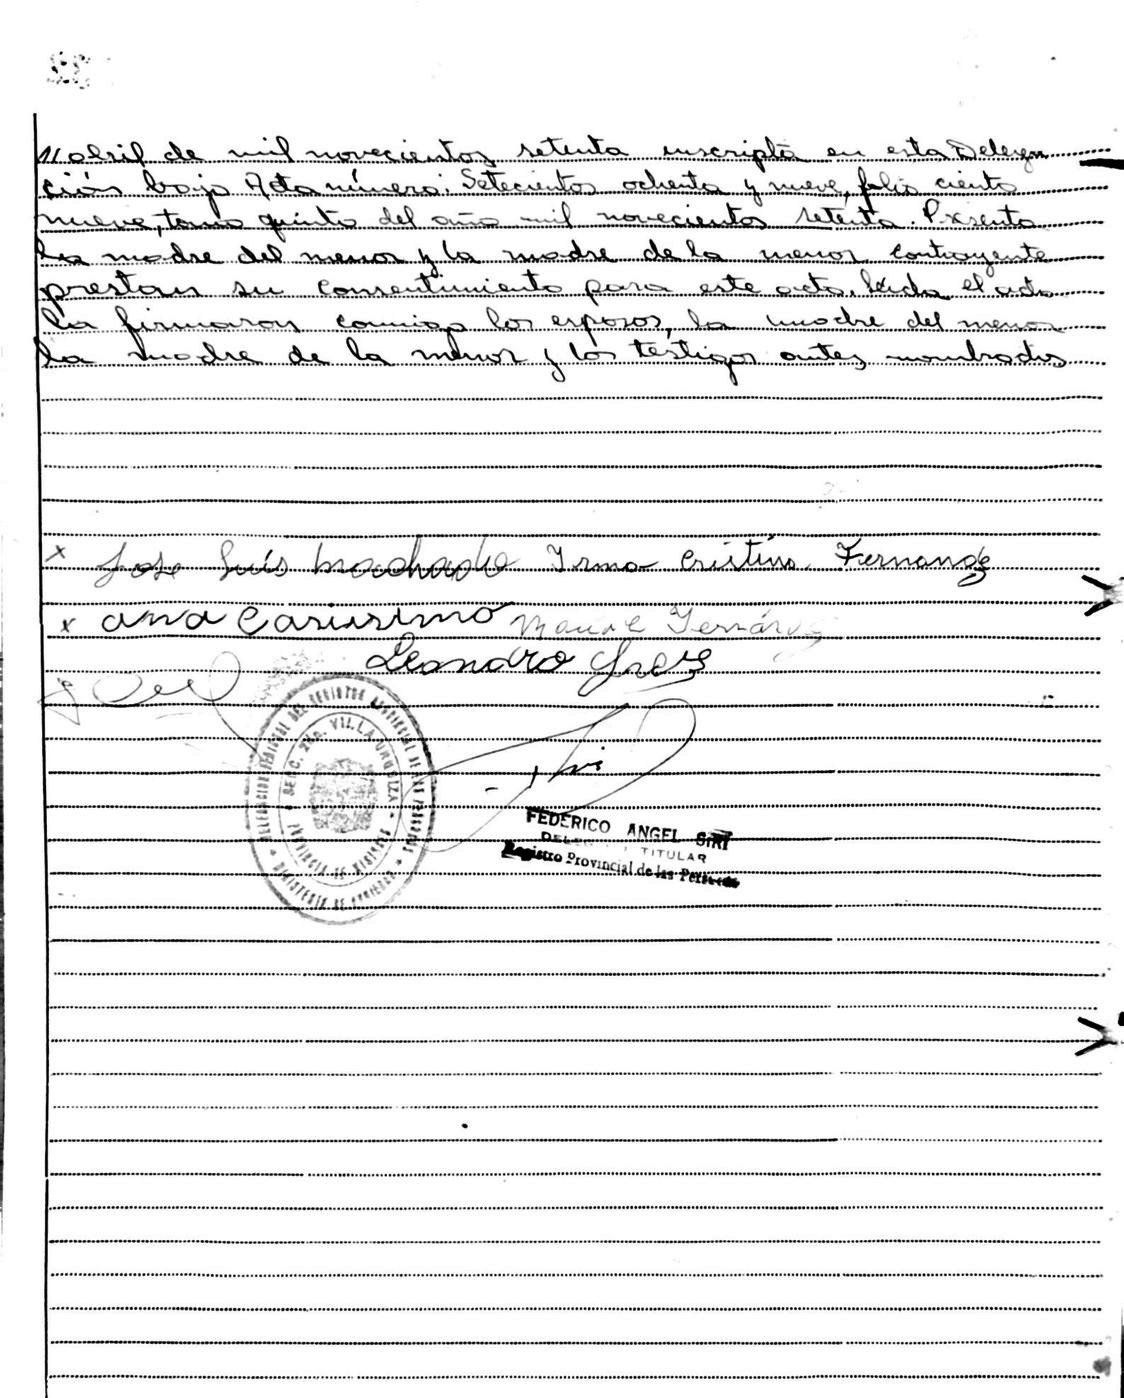 // abril de mil novecientos setenta inscripta en esta Delega
ción bajo Acta número: Setecientos ochenta y nueve, folio ciento
nueve, tomo quinto del año mil novecientos setenta. Presente
la madre del menor y la madre de la menor contrayente
prestan su consentimiento para este acto. Leida el acta
la firmaron conmigo los esposos, la madre del menor
la madre de la menor y los testigos antes nombrados
x Jose Luís Machado Irma Cristina Fernandez
x ana Carissimo
Leandro
SECC. 2da. VILLA URQUIZA
PROVINCIA DE MISIONES
MINISTERIO DE GOBIERNO
FEDERICO ANGEL SIRI
TITULAR
Registro Provincial de las Personas